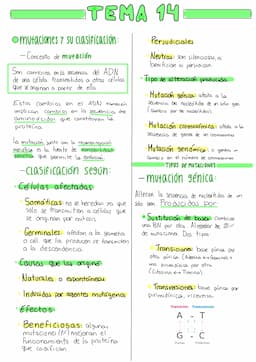 TEMA 14
MUTACIONES Y SU CLASIFICACIÓN
- Concepto de mutación
Son cambios en la secuencia del ADN
de una célula, transmitidos a otras células
que se originan a partir de ella
Estos cambios en el ADN también
implican cambios en la secuencia de
aminoácidos que constituyen la
proteína.
La mutación, junto con la recombinación
genética es la fuente de variabilidad
que permite la evolución.
- CLASIFICACIÓN SEGÚN:
Células afectadas
Somáticas: no se heredan ya que
solo se transmiten a células que
se originan por mitosis
Germinales: afectan a los gametos
o cél. que los producen, se transmiten
a la descendencia
Causas que las originan
Naturales o espontáneas
Inducidas por agentes mutágenos
Efectos
Beneficiosas: algunas
mejoran el
funcionamiento de la proteína
que codifican
Perjudiciales
Neutras: son silenciosas, ni
benefician ni perjudican
Tipo de alteración producida
Mutación génica: afecta a la
secuencia de nucleótidos de un solo gen
Mutación cromosómica: afecta a la
secuencia de genes de un cromosoma
Mutación genómica:
cambio en el número de cromosomas
TIPOS DE MUTACIONES
- MUTACIÓN GÉNICA:
Alteran la secuencia de nucleótidos de un
solo gen. Producidas por
Sustitución de bases: cambio
una BN por otra.
de mutaciones. Dos tipos
Transiciones: base púrica por
otra púrica
o una pirimidínica por
otra pirimidínica
Transversiones: base púrica por
pirimidínica, viceversa.
A - T
G - C